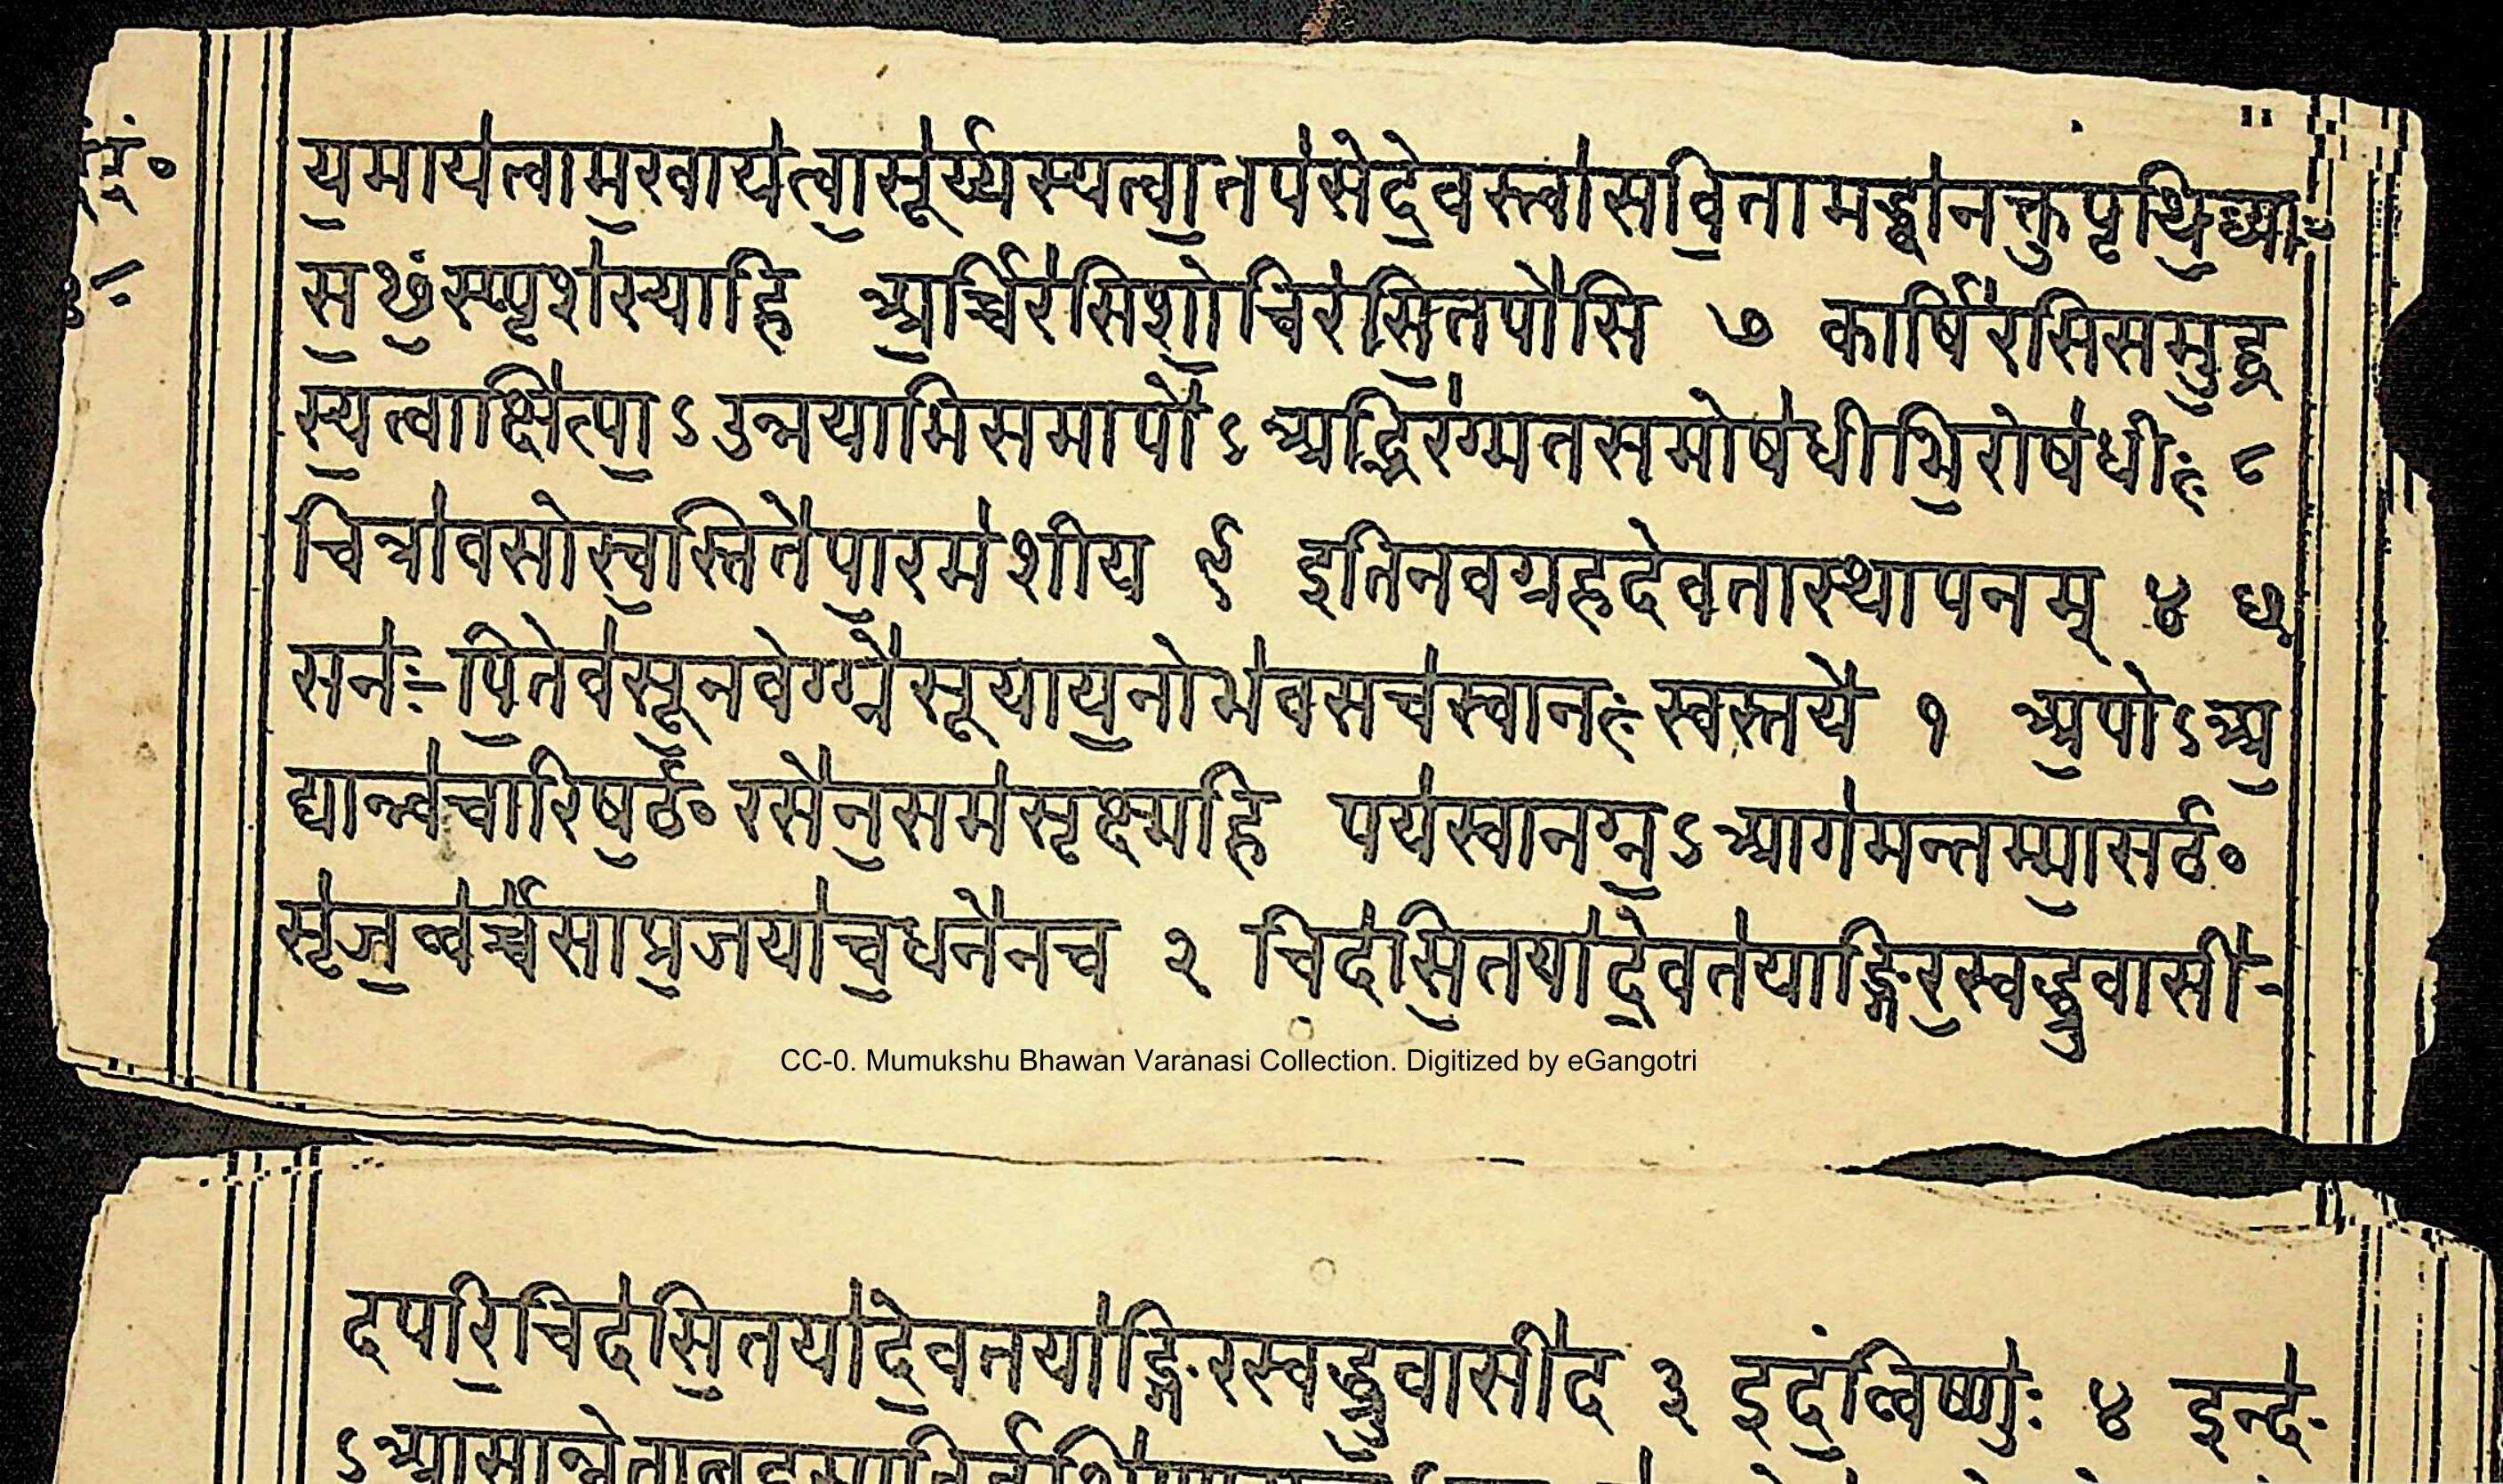 य॒माय॑त्वाम॒खाय॑त्वा॒सूर्य्य॑स्यत्वा॒तप॑सेदे॒वस्त्वा॑सवि॒तामद्ध्वा॑नक्तुपृथि॒व्याः
स॒ᳪस्पृश॑स्पाहि अ॒र्च्चिर॑सिशो॒चिर॑सि॒तपो॑सि ७ कार्षि॑रसिसमु॒द्र
स्य॒त्वाक्षि॑त्पा॒ऽउन्नयामिसमापो॑ऽअद्भिर॑ग्मतसमोष॑धीभि॒रोष॑धीः ८
चित्रा॑वसोस्व॒स्तिते॑पा॒रम॑शीय ९ इतिनवग्रहदेवतास्थापनम् ४
सनः॑पि॒तेव॑सू॒नवेग्ग्ने॑सूयाय॒नोभ॑वसच॑स्वानःस्वस्तये॑ १ अ॒पोऽअ॒
द्यान्व॑चारिष॒ᳪ रसे॑न॒सम॑सृक्ष्महि पय॑स्वानग्न॒ऽआग॑मन्तम्मा॒सᳪ
सृ॑ज॒व्वर्च्च॑साप्र॒जया॑च॒धने॑नच २ चिद॑सि॒तया॑दे॒वत॑याङ्गिर॒स्वद्ध्रुवासी॑-
CC-0. Mumukshu Bhawan Varanasi Collection. Digitized by eGangotri
दपरि॒चिद॑सि॒तया॑दे॒वतया॑ङ्गिरस्वद्ध्रुवासी॑द ३ इदं॒व्विष्णुः॑ ४ इन्द्र॑